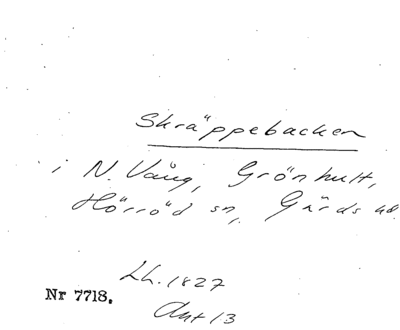 Skräppebacken
i N. Vång, Grönhult,
Hörröd sn, Gärds hd.
Lh. 1827
Nr 7718.
Akt 13